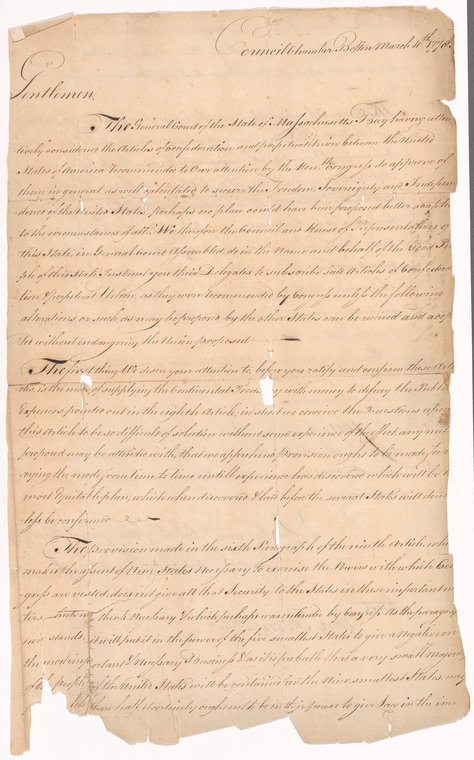 Council Chamber Boston March 10th 1778
Gentlemen,
The General Court of the State of Massachusetts Bay having atten
tively considered the Articles of Confederation and perpetual Union between the United
States of America recommended to Our attention by the Honble. Congress do approve of
them in general as well calculated to secure the Freedom Sovereignty and Indepen
dence of the United States perhaps no plan could have been proposed better adapted
to the circumstances of all. We therefore the Council and House of Representatives of
this State in General Court Assembled, do in the Name and behalf of the Good Peo
ple of this State Instruct you their Delegates to subscribe said Articles of Confedera
tion & perpetual Union, as they were recommended by Congress unless the following
alterations or such as may be proposed by the other States can be received and adop
ted without endangering the Union proposed
The first thing We desire your attention to, before you ratify and confirm these Arti
cles, is the mode of supplying the Continental Treasury with money to defray the Public
Expences pointed out in the eighth Article, in short we conceive the Questions upon
this Article to be so difficult of solution without some experience of the effect any mode
proposed may be attended with that we apprehend provision ought to be made for va
rying the mode from time to time untill experience has discovered which will be the
most Equitable plan, which when discovered & laid before the several States will doubt
less be confirmed
The provision made in the sixth Paragraph of the ninth Article, which
makes the assent of Nine States Necessary to exercise the Powers with which Con
gress are vested, does not give all that Security to the States in these important mat
ters think Necessary & which perhaps was intended by Congress. As the paragraph
now stands, it will put it in the power of the five smallest States to give a Negative on
the most important & Necessary Business & as it is probable that a very small Majority
of the people of the United States will be contained in the Nine smallest States, may
less than half it certainly ought not to be in their power to give Law in the im